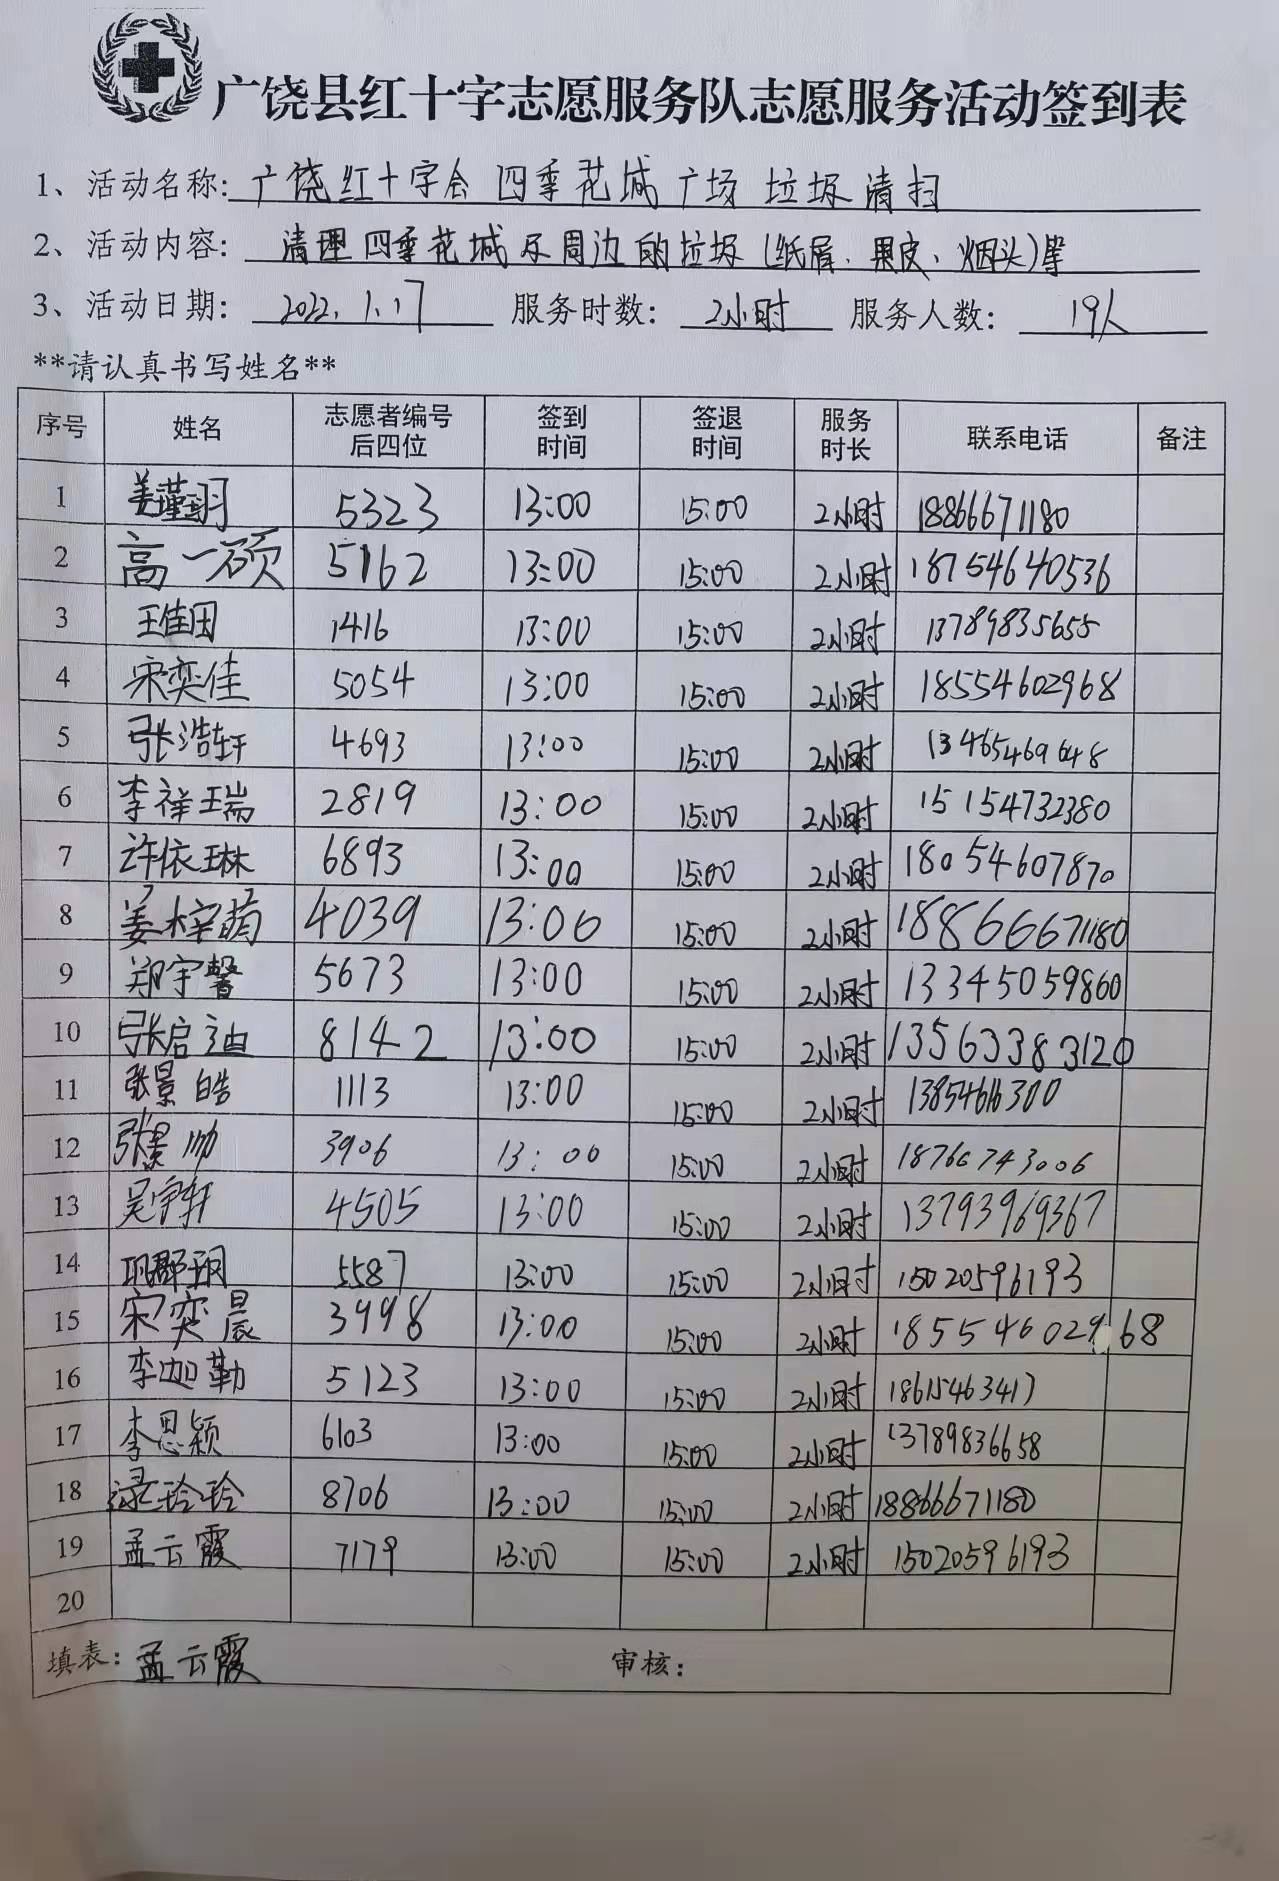 广饶县红十字志愿服务队志愿服务活动签到表
1、活动名称: 广饶红十字会 四季花城广场垃圾清扫
2、活动内容: 清理四季花城及周边的垃圾(纸屑、果皮、烟头)等
3、活动日期: 2022.1.17 服务时数: 2小时 服务人数: 19人
**请认真书写姓名**
序号 姓名 志愿者编号后四位 签到时间 签退时间 服务时长 联系电话 备注
1 姜瑾羽 5323 13:00 15:00 2小时 18866671180
2 高一硕 5162 13:00 15:00 2小时 18754640536
3 王佳田 1416 13:00 15:00 2小时 13789835655
4 宋奕佳 5054 13:00 15:00 2小时 18554602968
5 张浩轩 4693 13:00 15:00 2小时 13465469648
6 李祥瑞 2819 13:00 15:00 2小时 15154732380
7 许依琳 6893 13:00 15:00 2小时 18054607870
8 姜梓萌 4039 13:00 15:00 2小时 18866671180
9 郑宇馨 5673 13:00 15:00 2小时 13345059860
10 张启迪 8142 13:00 15:00 2小时 13563383120
11 张景皓 1113 13:00 15:00 2小时
12 张景帅 3906 13:00 15:00 2小时 18766743006
13 吴宇轩 4505 13:00 15:00 2小时 13793969367
14 巩郡玥 5587 13:00 15:00 2小时 15020596193
15 宋奕晨 3998 13:00 15:00 2小时 18554602968
16 李迦勒 5123 13:00 15:00 2小时 18615463417
17 李思颖 6103 13:00 15:00 2小时 13789836658
18 玲玲 8706 13:00 15:00 2小时 18866671180
19 孟云霞 7179 13:00 15:00 2小时 15020596193
20
填表: 孟云霞 审核: